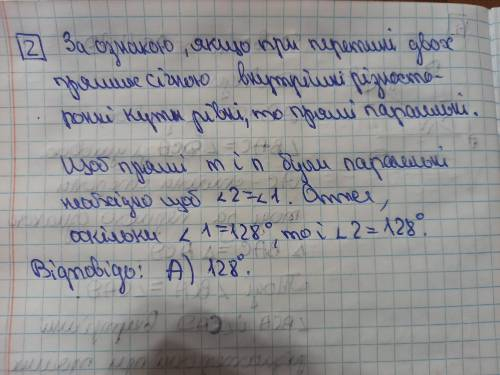 2 За ознакою, якщо при перетині двох
прямих січною внутрішні різносто-
ронні кути рівні, то прямі паралельні.
Щоб прямі m і n були паралельні
необхідно щоб ∠2=∠1. Отже,
оскільки ∠1=128°, то і ∠2=128°.
Відповідь: А) 128°.